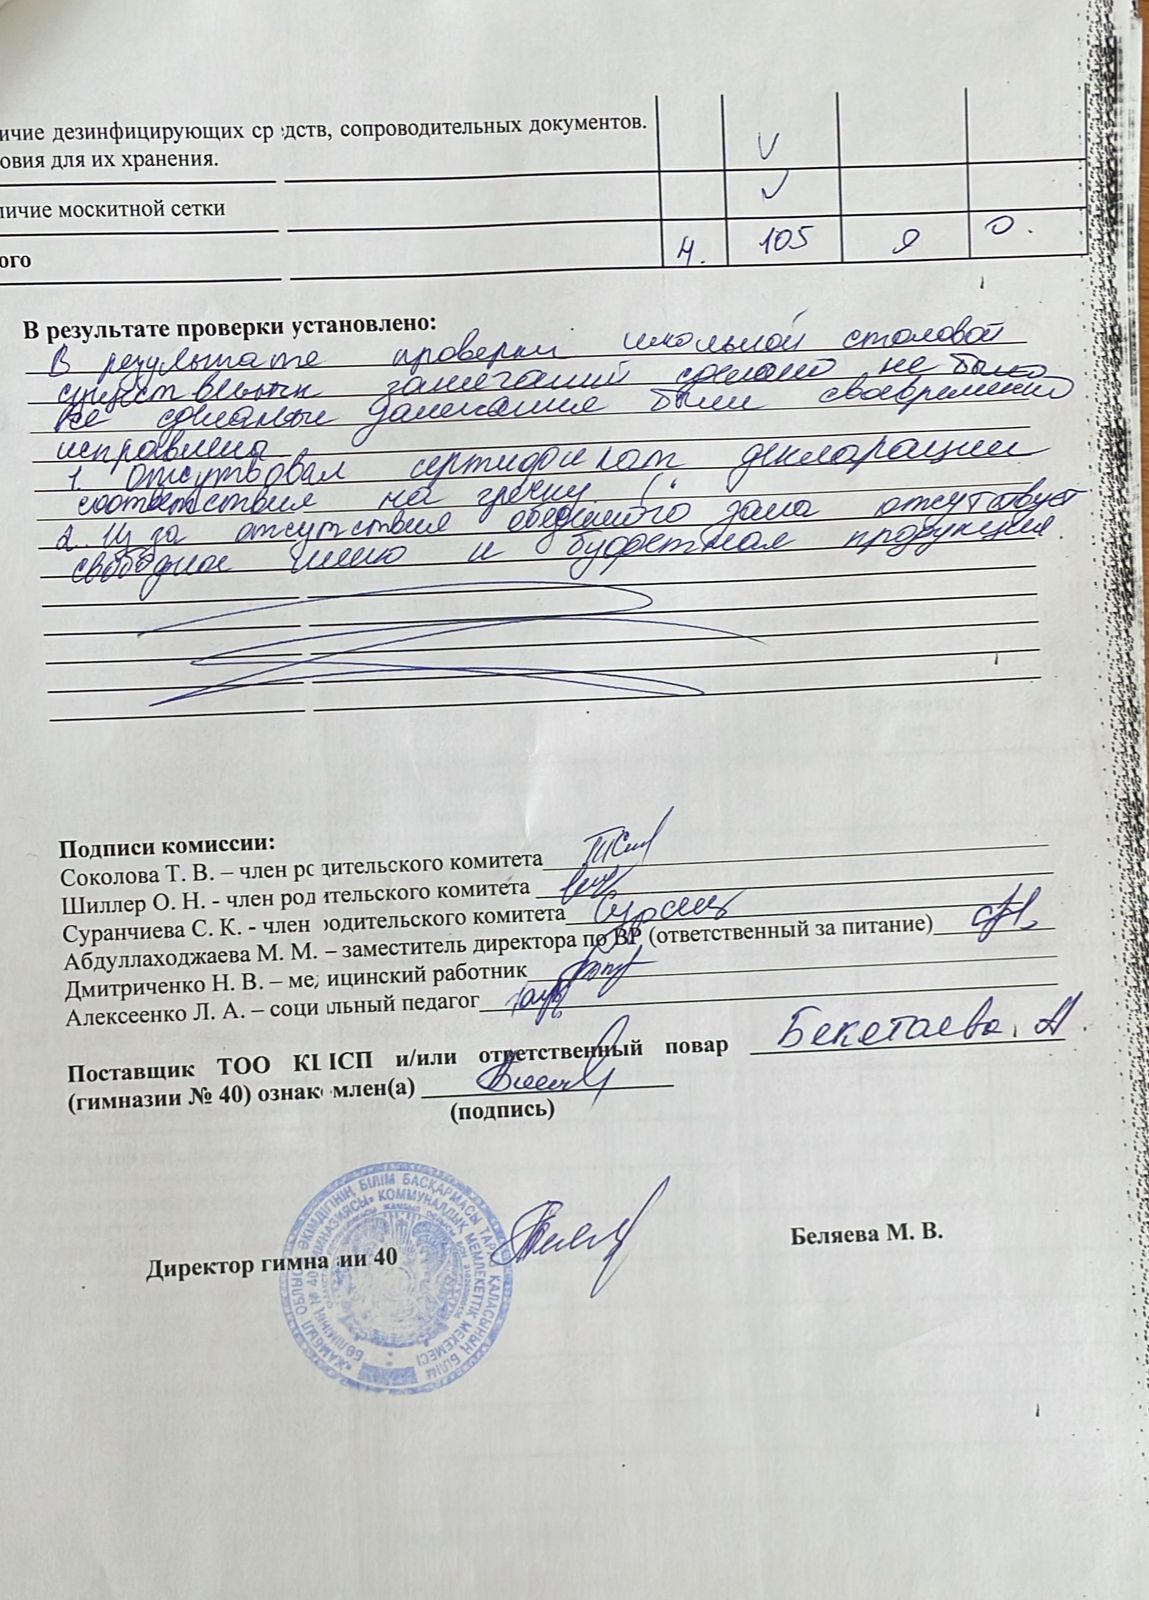 ичие дезинфицирующих ср дств, сопроводительных документов.
овия для их хранения.
личие москитной сетки
ого 4. 105 9 0.
В результате проверки установлено:
В результате проверки школьной столовой
существенных замечаний сделано не было
все сделанные замечания были своевременно
исправлены
1. Отсутвовал сертификат декларации
соответствия на гречку.
2. Из за отсутствия обеденного зала отсутствует
свободное меню и буфетная продукция.
Подписи комиссии:
Соколова Т. В. – член ро дительского комитета
Шиллер О. Н. - член род ительского комитета
Суранчиева С. К. - член родительского комитета
Абдуллаходжаева М. М. – заместитель директора по ВР (ответственный за питание)
Дмитриченко Н. В. – ме ицинский работник
Алексеенко Л. А. – соци льный педагог
Поставщик ТОО КШСП и/или ответственный повар Бекетаева. А.
(гимназии № 40) ознак млен(а)
(подпись)
Директор гимна ии 40 Беляева М. В.
«ЖАМБЫЛ ОБЛЫСЫ ӘКІМДІГІНІҢ БІЛІМ БАСҚАРМАСЫ ТАРАЗ ҚАЛАСЫНЫҢ БІЛІМ
БӨЛІМІНІҢ № 40 ГИМНАЗИЯСЫ» КОММУНАЛДЫҚ МЕМЛЕКЕТТІК МЕКЕМЕСІ